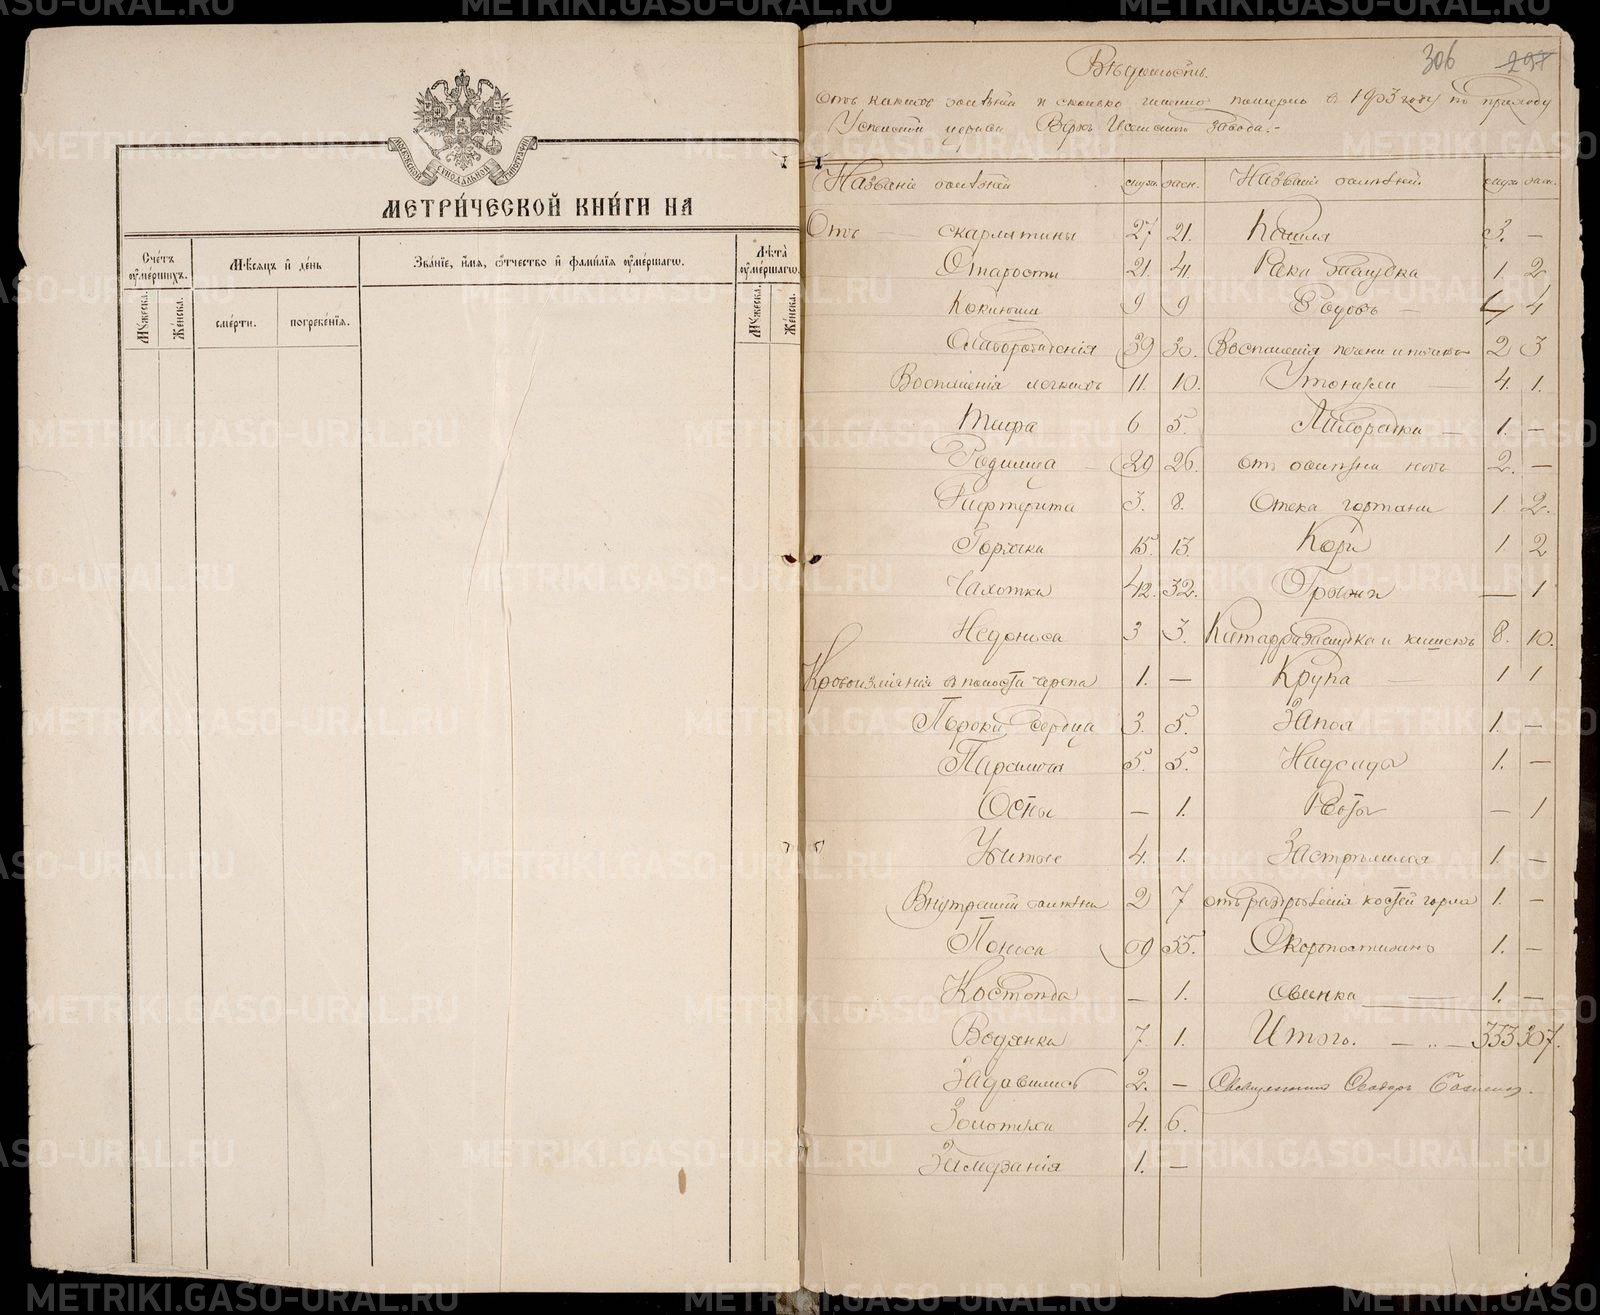 МЕТРИ́ЧЕСКОЙ КНИ́ГИ НА
МОСКОВСКОЙ СѴНОДАЛЬНОЙ ТИПОГРАФІИ
Сче́тъ ᲂу҆ме́ршихъ.
Мѣ́сяцъ и҆ де́нь
Зва́нїе, и҆́мя, ѻ҆́тчество и҆ фами́лїя ᲂу҆ме́ршагѡ.
Лѣ́та ᲂу҆ме́ршагѡ.
Мꙋ́жеска.
Же́нска.
сме́рти.
погребе́нїя.
Мꙋ́жеска.
Же́нска.
306 297
Вѣдомость.
Отъ какихъ болѣзней и сколько именно померло въ 1903 году по приходу
Успенской церкви Верхъ Исетскаго завода.-
Названіе болѣзней мужч. женщ. Названіе болѣзней мужч. женщ.
Отъ — скарлатины 27 21. Кашля 3. —
Старости 21. 41. Рака желудка 1. 2
Коклюша 9 9 Родовъ — 4
Слаборожденія 39 30. Воспаленія печени и почекъ 2 3
Воспаленія легкихъ 11. 10. Утонули — 4. 1.
Тифа 6 5. Лихорадки — 1. —
Родимца 29 26. отъ болѣзни ногъ 2. —
Дифтерита 3. 8. Отека гортани 1 2.
Горячка 15. 13. Кори 1. 2
Чахотка 42. 32. Грыжи — 1
Недоноса 3 3. Катарра желудка и кишекъ 8. 10.
Кровоизліянія въ полости черепа 1. — Крупа 1 1
Пороки сердца 3. 5. Запоя 1. —
Паралича 5. 5. Надсады 1. —
Оспы — 1. Рвоты — 1
Убитые 4. 1. Застрѣлился 1. —
Внутренній болѣзни 2 7 отъ раздробленія костей горла 1. —
Поноса 69 55. Скоропостижно 1. —
Костоѣда — 1. свинка 1. —
Водянка 7. 1. Итого. — „ — 353 307.
Задавились 2. — Священникъ Ѳеодоръ
Золотуха 4. 6.
Замерзанія 1. —